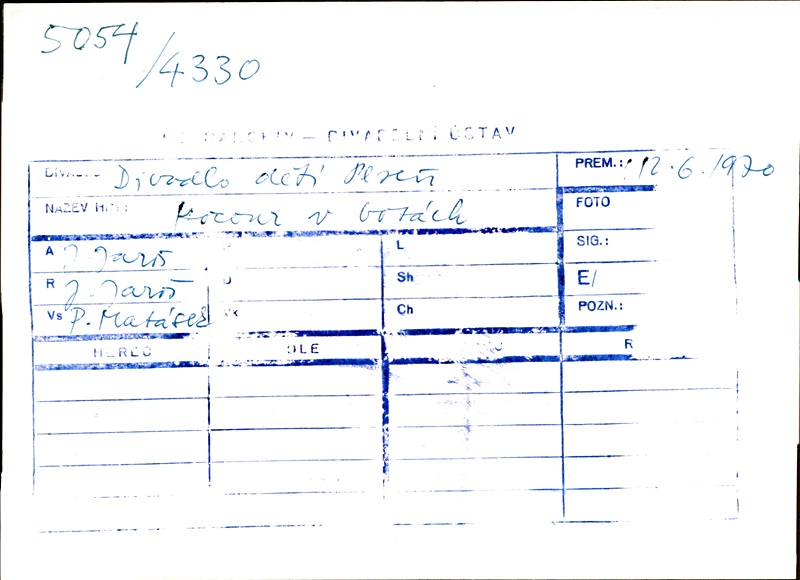 5054
/4330
— DIVADELNÍ ÚSTAV
Divadlo dětí Plzeň PREM.: 12.6.1970
NÁZEV HRY: Kocour v botách FOTO
A J. Jaroš L SIG.:
R J. Jaroš Sh E/
Vs P. Matásek Ch POZN.:
HEREC R